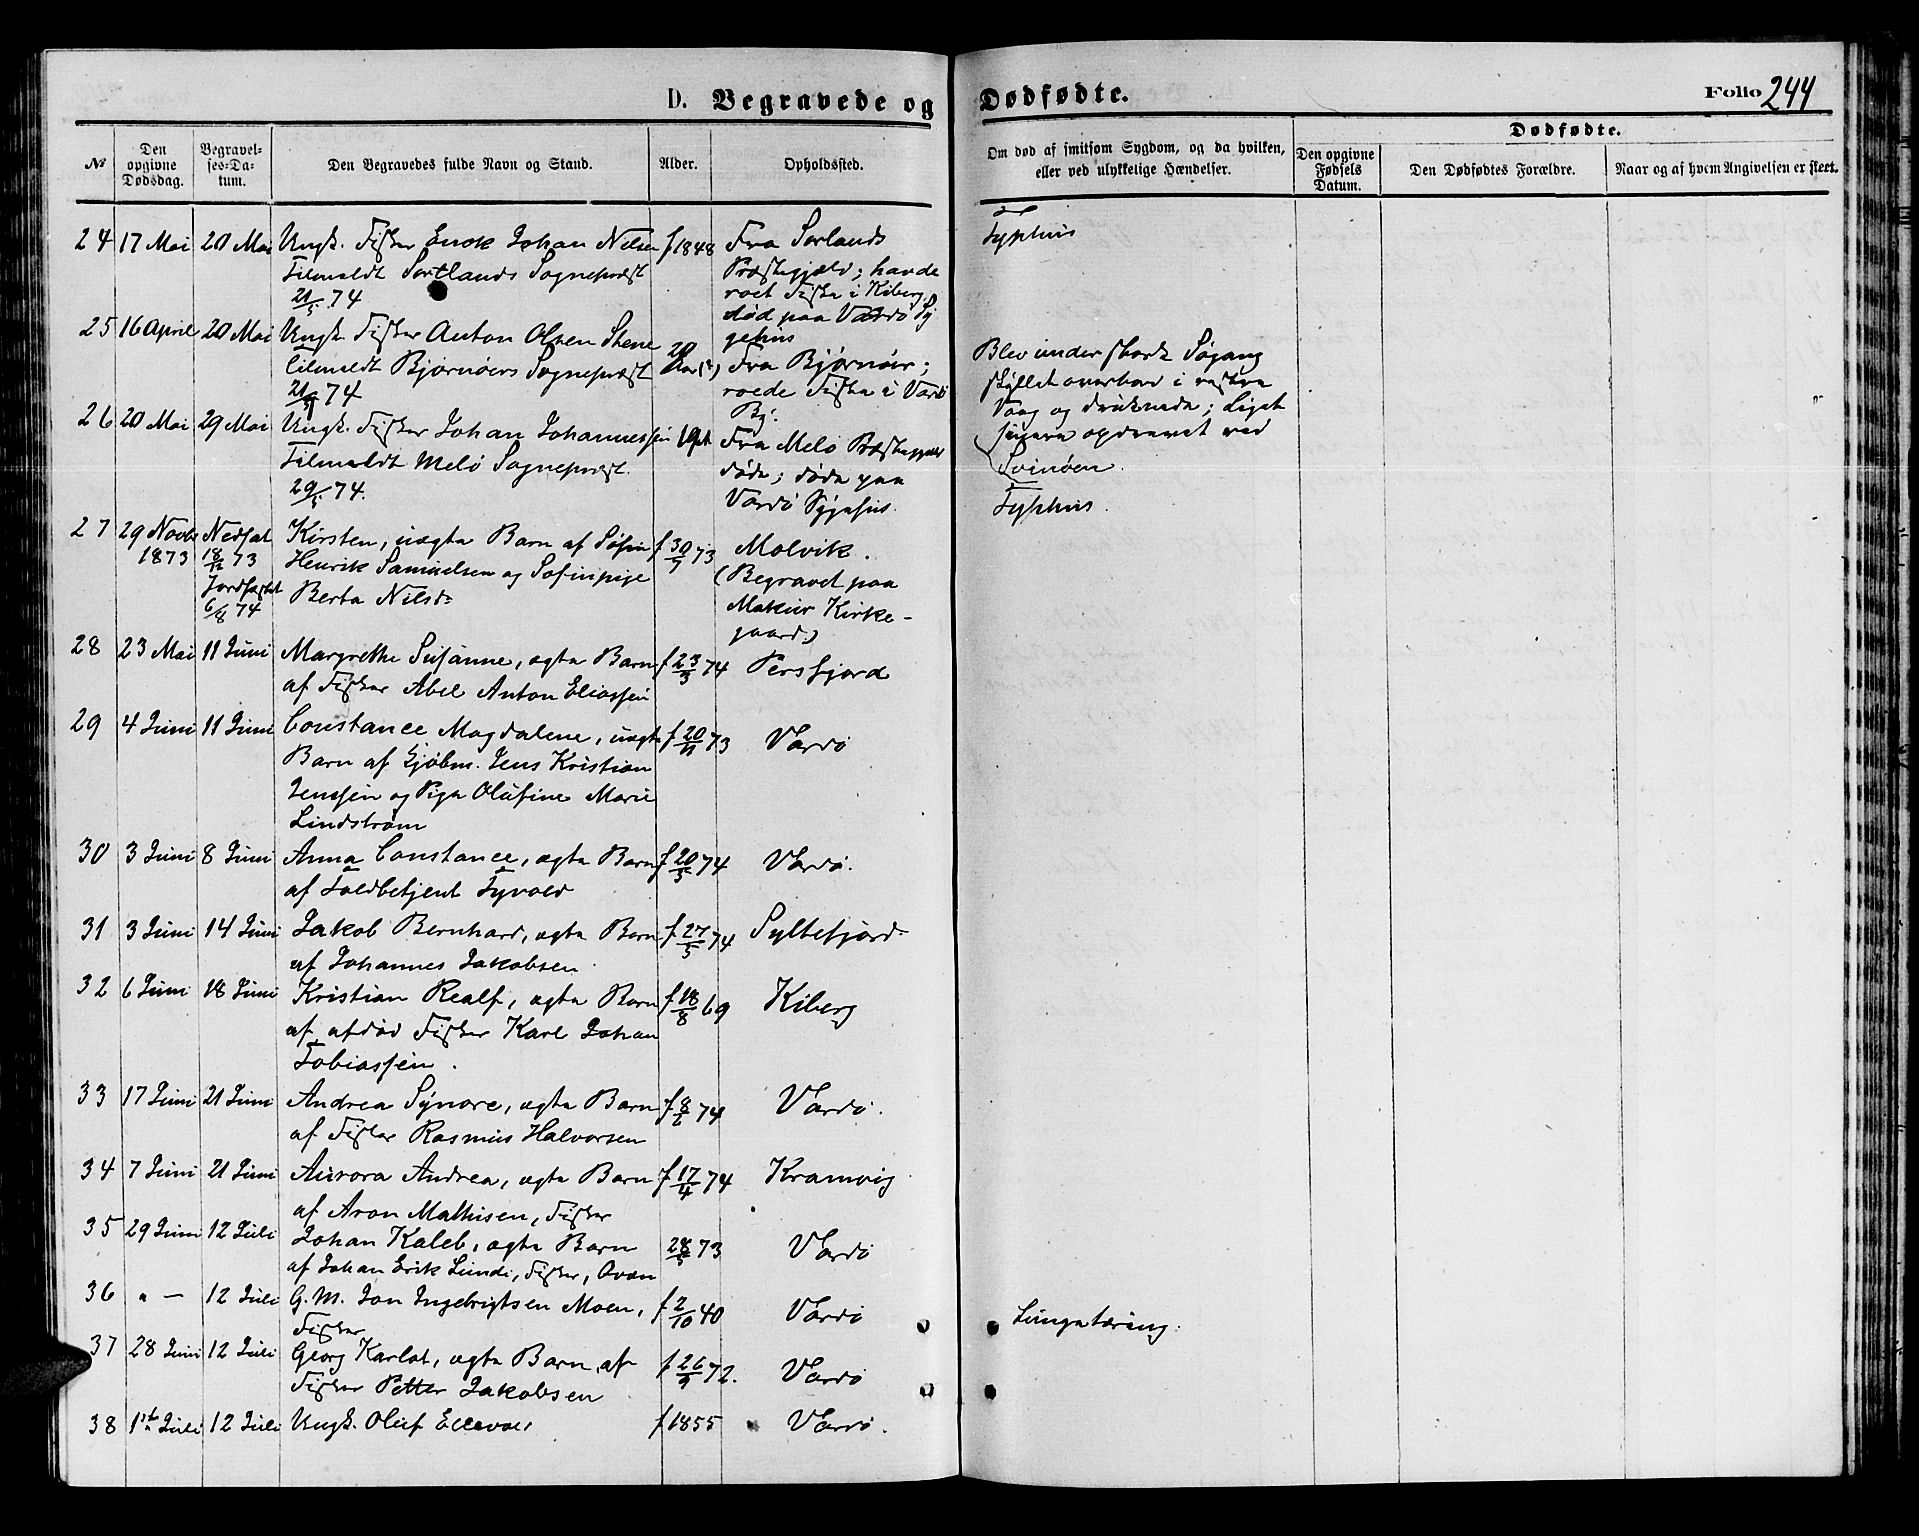 D. Begravede og Dødfødte.
Folio 244
№
Den opgivne Dødsdag.
Begravelses-Datum.
Den Begravedes fulde Navn og Stand.
Alder.
Opholdssted.
Om død af smitsom Sygdom, og da hvilken,
eller ved ulykkelige Hændelser.
Dødfødte.
Den opgivne Fødsels Datum.
Den Dødfødtes Forældre.
Naar og af hvem Angivelsen er skeet.
24 17 Mai 20 Mai Ungk. Fisker Enok Johan Nilsen f 1848 Fra Sorlands
Tilmeldt Sortlands Sognepræst
21/5 74
Præstegjæld; havde
roet Fiske i Kiberg,
død paa Vardø Sy
gehus
Typhus
25 16 April 20 Mai Ungk. Fisker Anton Olsen Stene 20 Aar (?) Fra Bjørnøer;
tilmeldt Bjørnøers Sognepræst
21/5 74
roede Fiske i Vardø
By.
Blev under stærk Søgang
skyllet overbord i vestre
Vaag og druknede; Liget
senere opdrevet ved
Svinøen.
26 20 Mai 29 Mai Ungk. Fisker Johan Johannessen 19 Fra Melø
Tilmeldt Melø Sognepræst.
29/5 74.
døde; døde paa
Vardø Sygehus.
Typhus.
27 29 Novbr 1873 Nedsat 18/12 73 Jordfæstet 6/8 74
Kirsten, uægte Barn af
Henrik Samuelsen og Sofinpige
Berta Nilsd:
f 30/7 73
Molvik.
(Begravet paa
Makur Kirke-
gaard.)
28 23 Mai 11 Juni Margrethe Susanne, ægte Barn f 23/3 74 Persfjord
af Fisker Abel Anton Eliassen
29 4 Juni 11 Juni Constance Magdalene, uægte f 20/11 73 Vardø
Barn af Kjøbm. Jens Kristian
Jenssen og Pige Olufine Marie
Lindstrøm
30 3 Juni 8 Juni Anna Constance, ægte Barn f 20/5 74 Vardø.
af Toldbetjent Tyvold
31 3 Juni 14 Juni Jakob Bernhard, ægte Barn f 27/5 74 Syltefjord
af Johannes Jakobsen
32 6 Juni 18 Juni Kristian Realf, ægte Barn f 18/8 69 Kiberg
af afdød Fisker Karl Johan
Tobiassen.
33 17 Juni 21 Juni Andrea Synore, ægte Barn f 8/6 74 Vardø.
af Fisker Rasmus Halvorsen
34 7 Juni 21 Juni Aurora Andrea, ægte Barn f 17/4 74 Kramvig
af Aron Mathisen, Fisker
35 29 Juni 12 Juli Johan Kaleb, ægte Barn 28/5 73 Vardø
af Johan Erik Lunde, Fisker, Qvæn
36 " — 12 Juli G.M. Jon Ingebrigtsen Moen, f 2/10 40 Vardø
Fisker
Lungetæring.
37 28 Juni 12 Juli Georg Karlot, ægte Barn af f 26/9 72. Vardø
Fisker Petter Jakobsen
38 1st Juli 12 Juli Ungk. Oluf f 1855 Vardø.